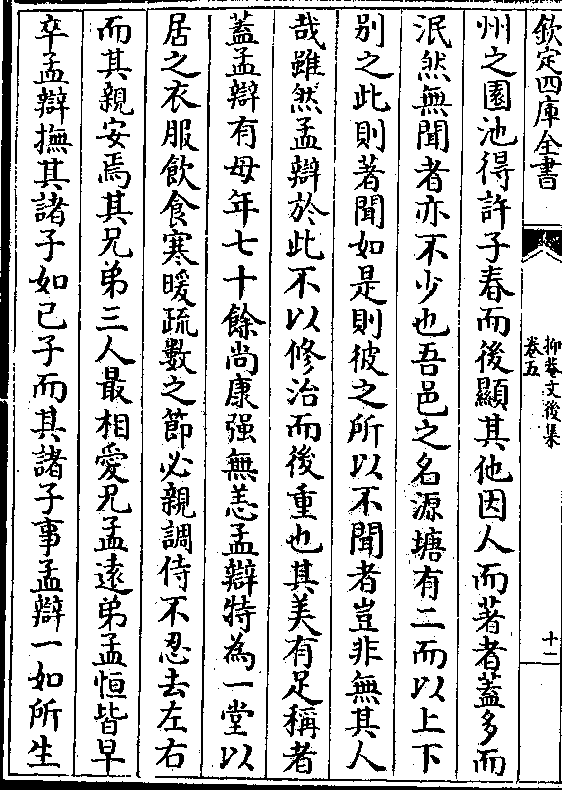 欽定四庫全書
抑菴文後集
卷五
十二
州之園池得許子春而後顯其他因人而著者蓋多而
泯然無聞者亦不少也吾邑之名源塘有二而以上下
別之此則著聞如是則彼之所以不聞者豈非無其人
哉雖然孟辯於此不以修治而後重也其美有足稱者
蓋孟辯有母年七十餘尚康强無恙孟辯特為一堂以
居之衣服飲食寒暖疏數之節必親調侍不忍去左右
而其親安焉其兄弟三人最相愛兄孟逺弟孟恒皆早
卒孟辯撫其諸子如己子而其諸子事孟辯一如所生